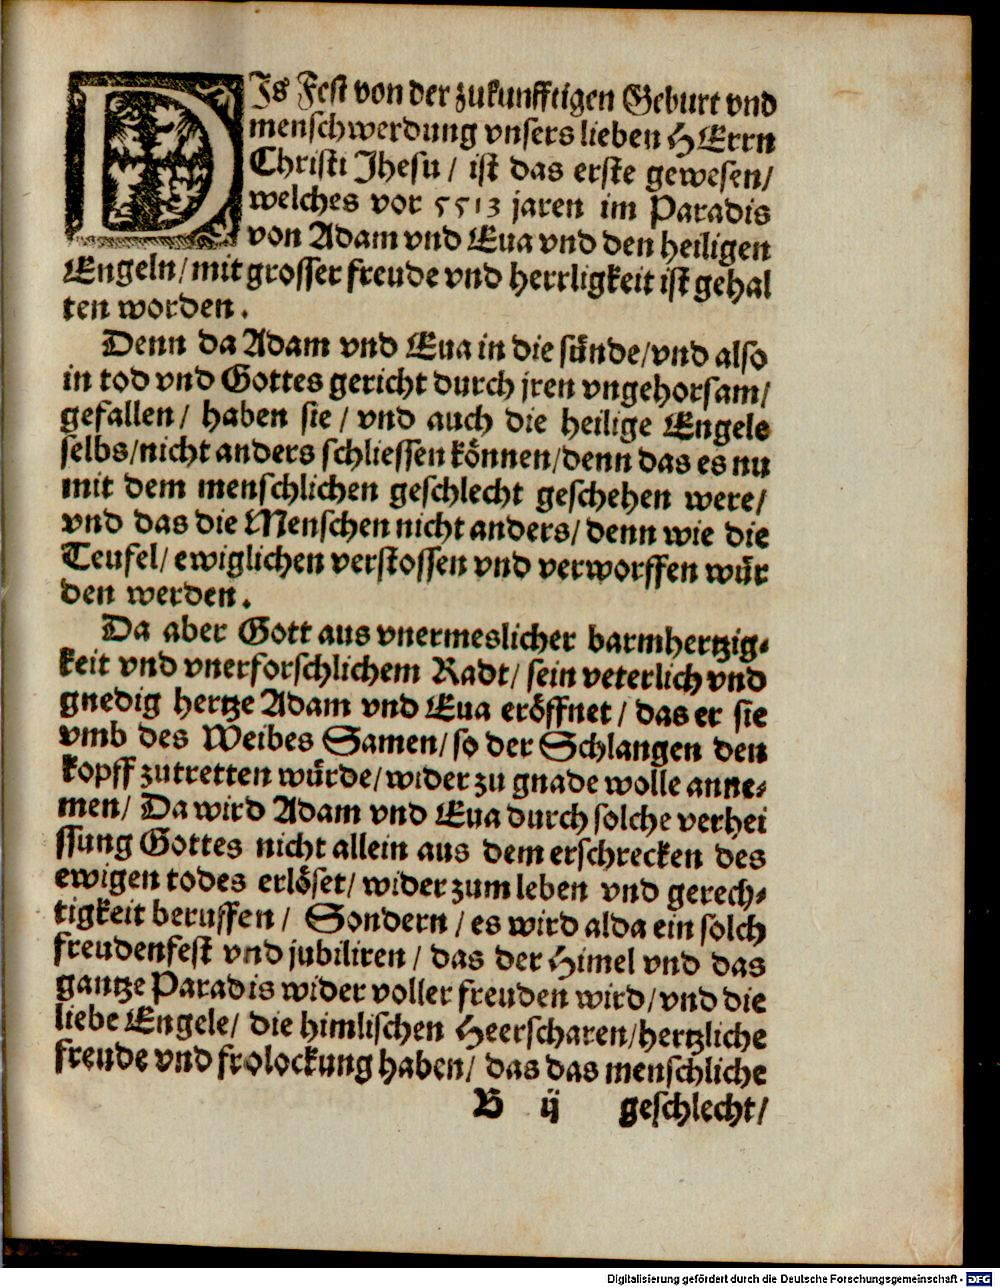 DIs Fest von der zukunfftigen Geburt vnd
menschwerdung vnsers lieben HErrn
Christi Jhesu / ist das erste gewesen/
welches vor 5513 jaren im Paradis
von Adam vnd Eua vnd den heiligen
Engeln/ mit grosser freude vnd herrligkeit ist gehal
ten worden.
Denn da Adam vnd Eua in die sünde/vnd also
in tod vnd Gottes gericht durch jren vngehorsam/
gefallen/ haben sie / vnd auch die heilige Engele
selbs/nicht anders schliessen können/denn das es nu
mit dem menschlichen geschlecht geschehen were/
vnd das die Menschen nicht anders/ denn wie die
Teufel/ ewiglichen verstossen vnd verworffen wür
den werden.
Da aber Gott aus vnermeslicher barmhertzig-
keit vnd vnerforschlichem Radt/ sein veterlich vnd
gnedig hertze Adam vnd Eua eröffnet / das er sie
vmb des Weibes Samen/ so der Schlangen den
kopff zutretten würde/ wider zu gnade wolle anne-
men/ Da wird Adam vnd Eua durch solche verhei
ssung Gottes nicht allein aus dem erschrecken des
ewigen todes erlöset/ wider zum leben vnd gerech-
tigkeit beruffen / Sondern / es wird alda ein solch
freudenfest vnd jubiliren / das der Himel vnd das
gantze Paradis wider voller freuden wird/ vnd die
liebe Engele/ die himlischen Heerscharen/hertzliche
freude vnd frolockung haben/ das das menschliche
B ij geschlecht/
Digitalisierung gefördert durch die Deutsche Forschungsgemeinschaft - DFG